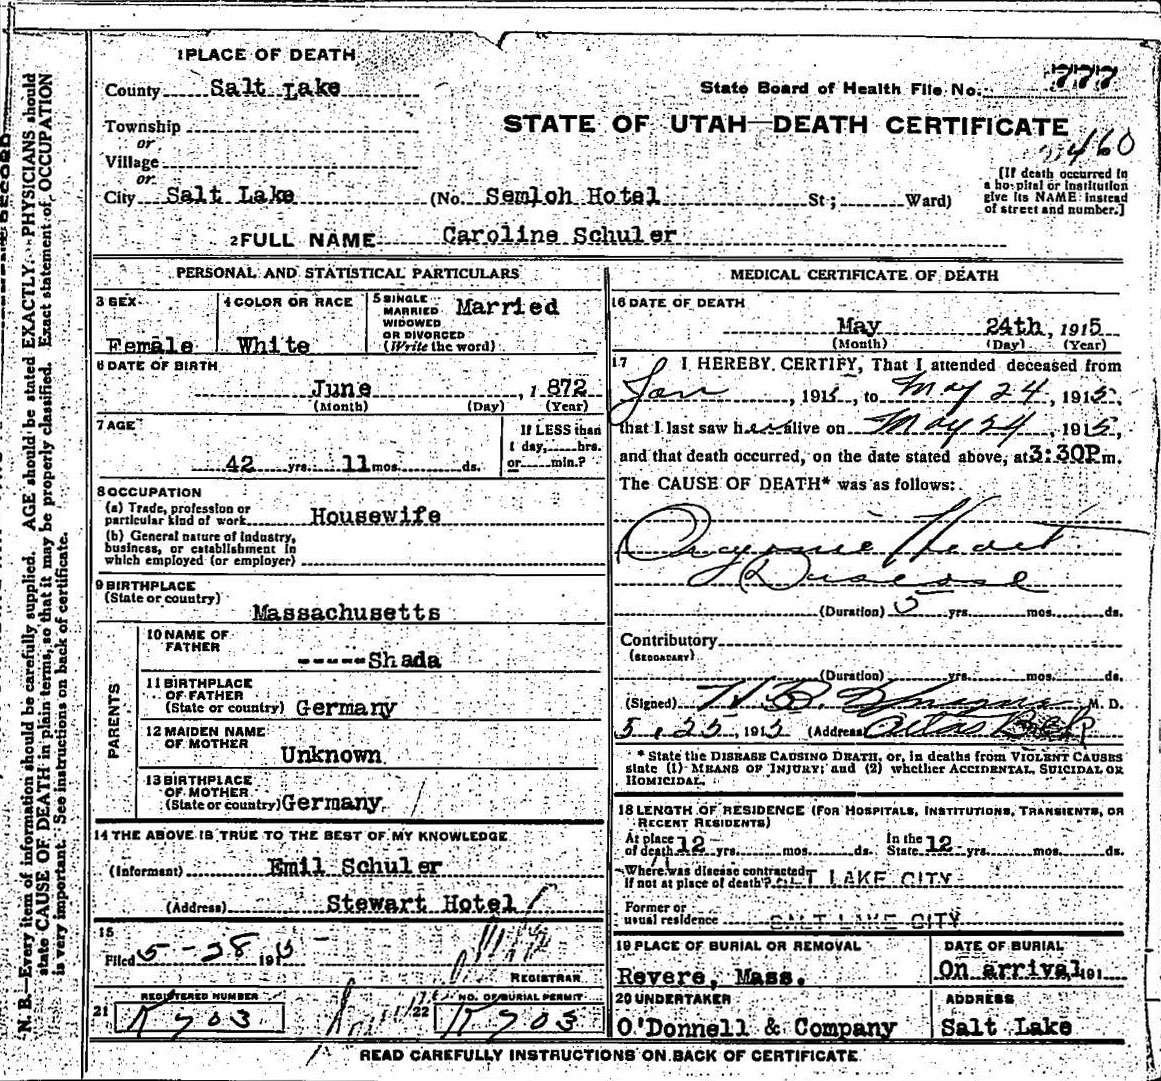 1 PLACE OF DEATH
County Salt Lake
State Board of Health File No. 777
Township
or
Village
or
STATE OF UTAH—DEATH CERTIFICATE
460
City Salt Lake (No. Semloh Hotel St; Ward)
[If death occurred in
a hospital or institution
give its NAME instead
of street and number.]
2 FULL NAME Caroline Schuler
PERSONAL AND STATISTICAL PARTICULARS
3 SEX
Female
4 COLOR OR RACE
White
5 SINGLE
MARRIED
WIDOWED
OR DIVORCED
(Write the word)
Married
6 DATE OF BIRTH
June , 1872
(Month) (Day) (Year)
7 AGE
42 yrs. 11 mos. ds.
If LESS than
1 day, hrs.
or min.?
8 OCCUPATION
(a) Trade, profession or
particular kind of work Housewife
(b) General nature of industry,
business, or establishment in
which employed (or employer)
9 BIRTHPLACE
(State or country)
Massachusetts
PARENTS
10 NAME OF
FATHER
-----Shada
11 BIRTHPLACE
OF FATHER
(State or country) Germany
12 MAIDEN NAME
OF MOTHER
Unknown
13 BIRTHPLACE
OF MOTHER
(State or country) Germany
14 THE ABOVE IS TRUE TO THE BEST OF MY KNOWLEDGE
(Informant) Emil Schuler
(Address) Stewart Hotel
15
Filed 5-28 1915
REGISTRAR
21 REGISTERED NUMBER
K 703
22 NO. OF BURIAL PERMIT
K 703
MEDICAL CERTIFICATE OF DEATH
16 DATE OF DEATH
May 24th, 1915
(Month) (Day) (Year)
17 I HEREBY CERTIFY, That I attended deceased from
Jan , 1915, to May 24, 1915,
that I last saw her alive on May 24, 1915,
and that death occurred, on the date stated above, at 3:30P m.
The CAUSE OF DEATH* was as follows:
Organic Heart
Disease
(Duration) 5 yrs. mos. ds.
Contributory
(SECONDARY)
(Duration) yrs. mos. ds.
(Signed) M. D.
5, 25, 1915 (Address)
* State the DISEASE CAUSING DEATH, or, in deaths from VIOLENT CAUSES
state (1) MEANS OF INJURY; and (2) whether ACCIDENTAL, SUICIDAL OR
HOMICIDAL.
18 LENGTH OF RESIDENCE (FOR HOSPITALS, INSTITUTIONS, TRANSIENTS, OR
RECENT RESIDENTS)
At place
of death 12 yrs. mos. ds.
In the
State 12 yrs. mos. ds.
Where was disease contracted
if not at place of death? SALT LAKE CITY
Former or
usual residence SALT LAKE CITY
19 PLACE OF BURIAL OR REMOVAL
Revere, Mass.
DATE OF BURIAL
On arrival, 191
20 UNDERTAKER
O'Donnell & Company
ADDRESS
Salt Lake
READ CAREFULLY INSTRUCTIONS ON BACK OF CERTIFICATE
N. B.—Every item of information should be carefully supplied. AGE should be stated EXACTLY. PHYSICIANS should
state CAUSE OF DEATH in plain terms, so that it may be properly classified. Exact statement of OCCUPATION
is very important. See instructions on back of certificate.